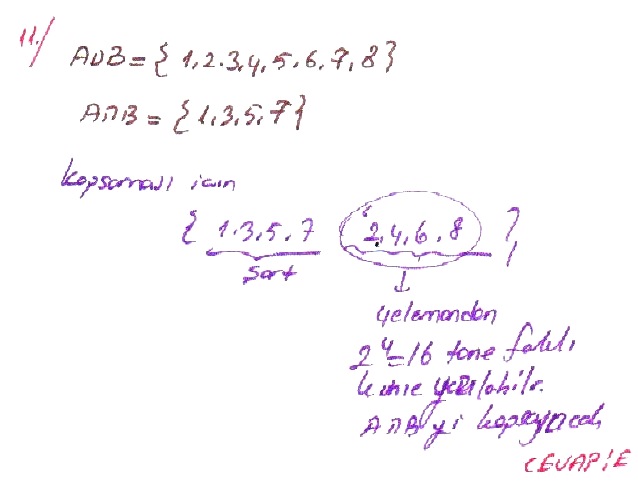 11./ A∪B = { 1,2,3,4,5,6,7,8}
A∩B = {1,3,5,7}
kapsaması için
{ 1,3,5,7 2,4,6,8 }
Şart
4 elemandan
2⁴=16 tane farklı
küme yazılabilir.
A∩B yi kapsayacak
CEVAP:E